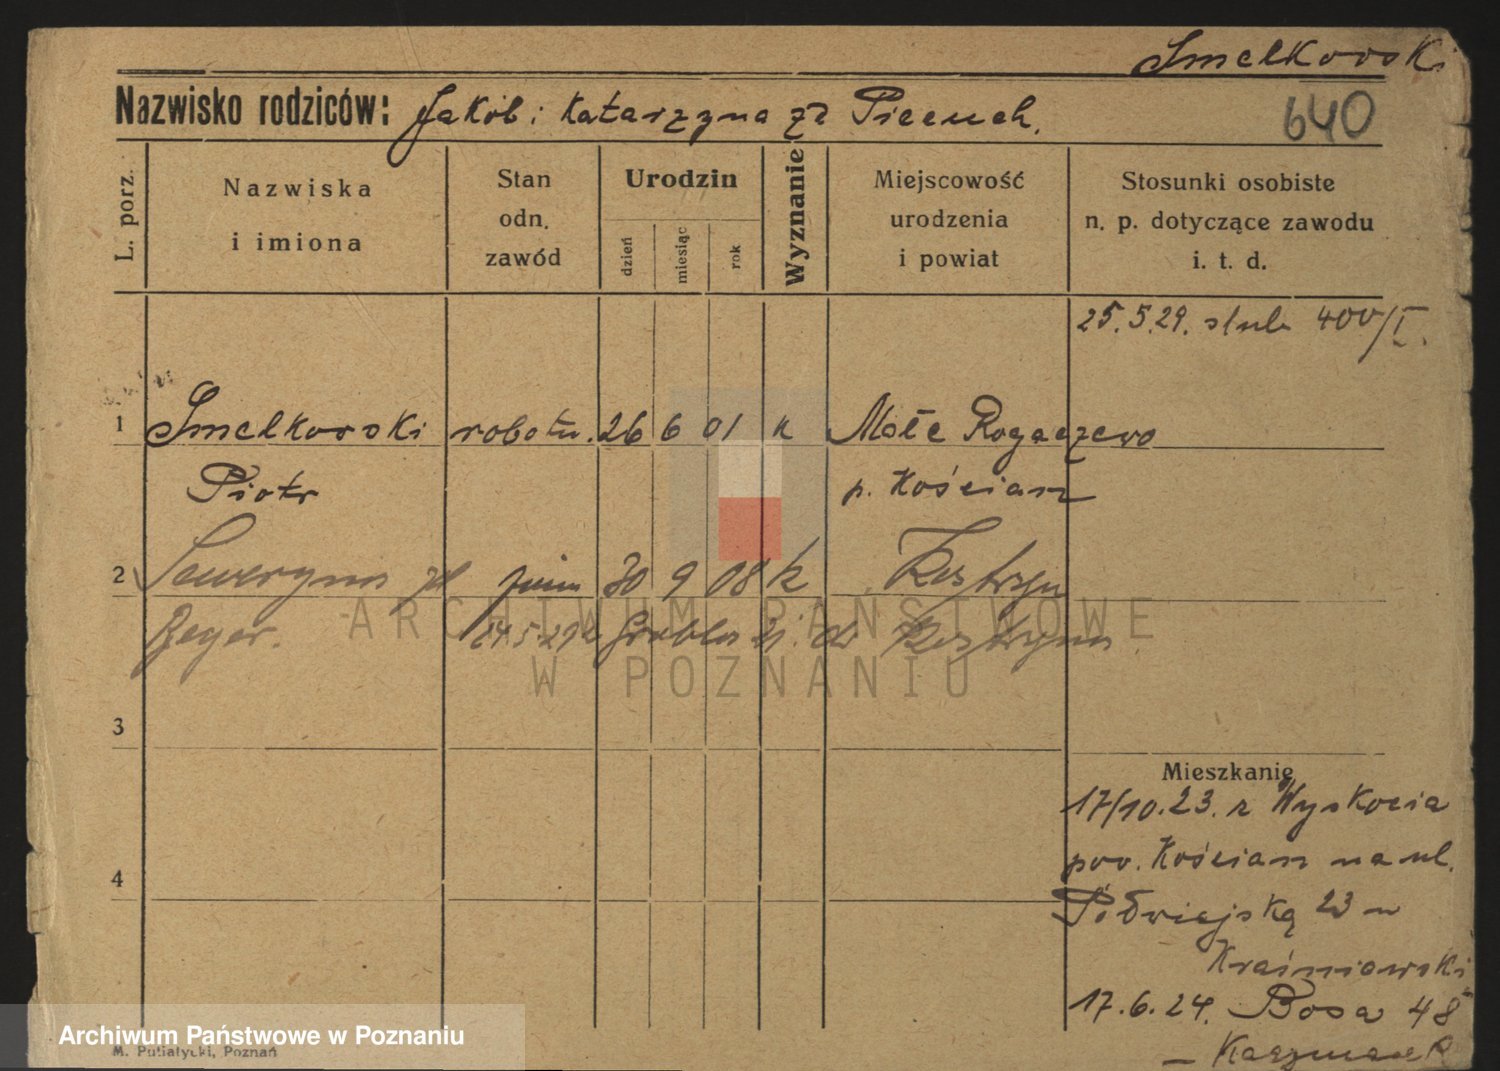 Smelkowski
Nazwisko rodziców: Jakób i Katarzyna zd Piecuch.
640
L. porz.
Nazwiska
i imiona
Stan
odn.
zawód
Urodzin
dzień
miesiąc
rok
Wyznanie
Miejscowość
urodzenia
i powiat
Stosunki osobiste
n. p. dotyczące zawodu
i. t. d.
25.5.29. slub 400/I.
1 Smelkowski robotn. 26 6 01 k Małe Rogaczewo
Piotr p. Kościan
2 Seweryna zd 30 9 08 k Kostrzyn
Beyer. Kostrzyna
3
4
Mieszkanie
17/10.23. z Wyskocia
pow. Kościan na ul.
Półwiejską 23 u
Kraśniowski
17.6.24. Bosa 48
– Kaczmarek
ARCHIWUM PAŃSTWOWE
W POZNANIU
Archiwum Państwowe w Poznaniu
M. Putiatycki, Poznań